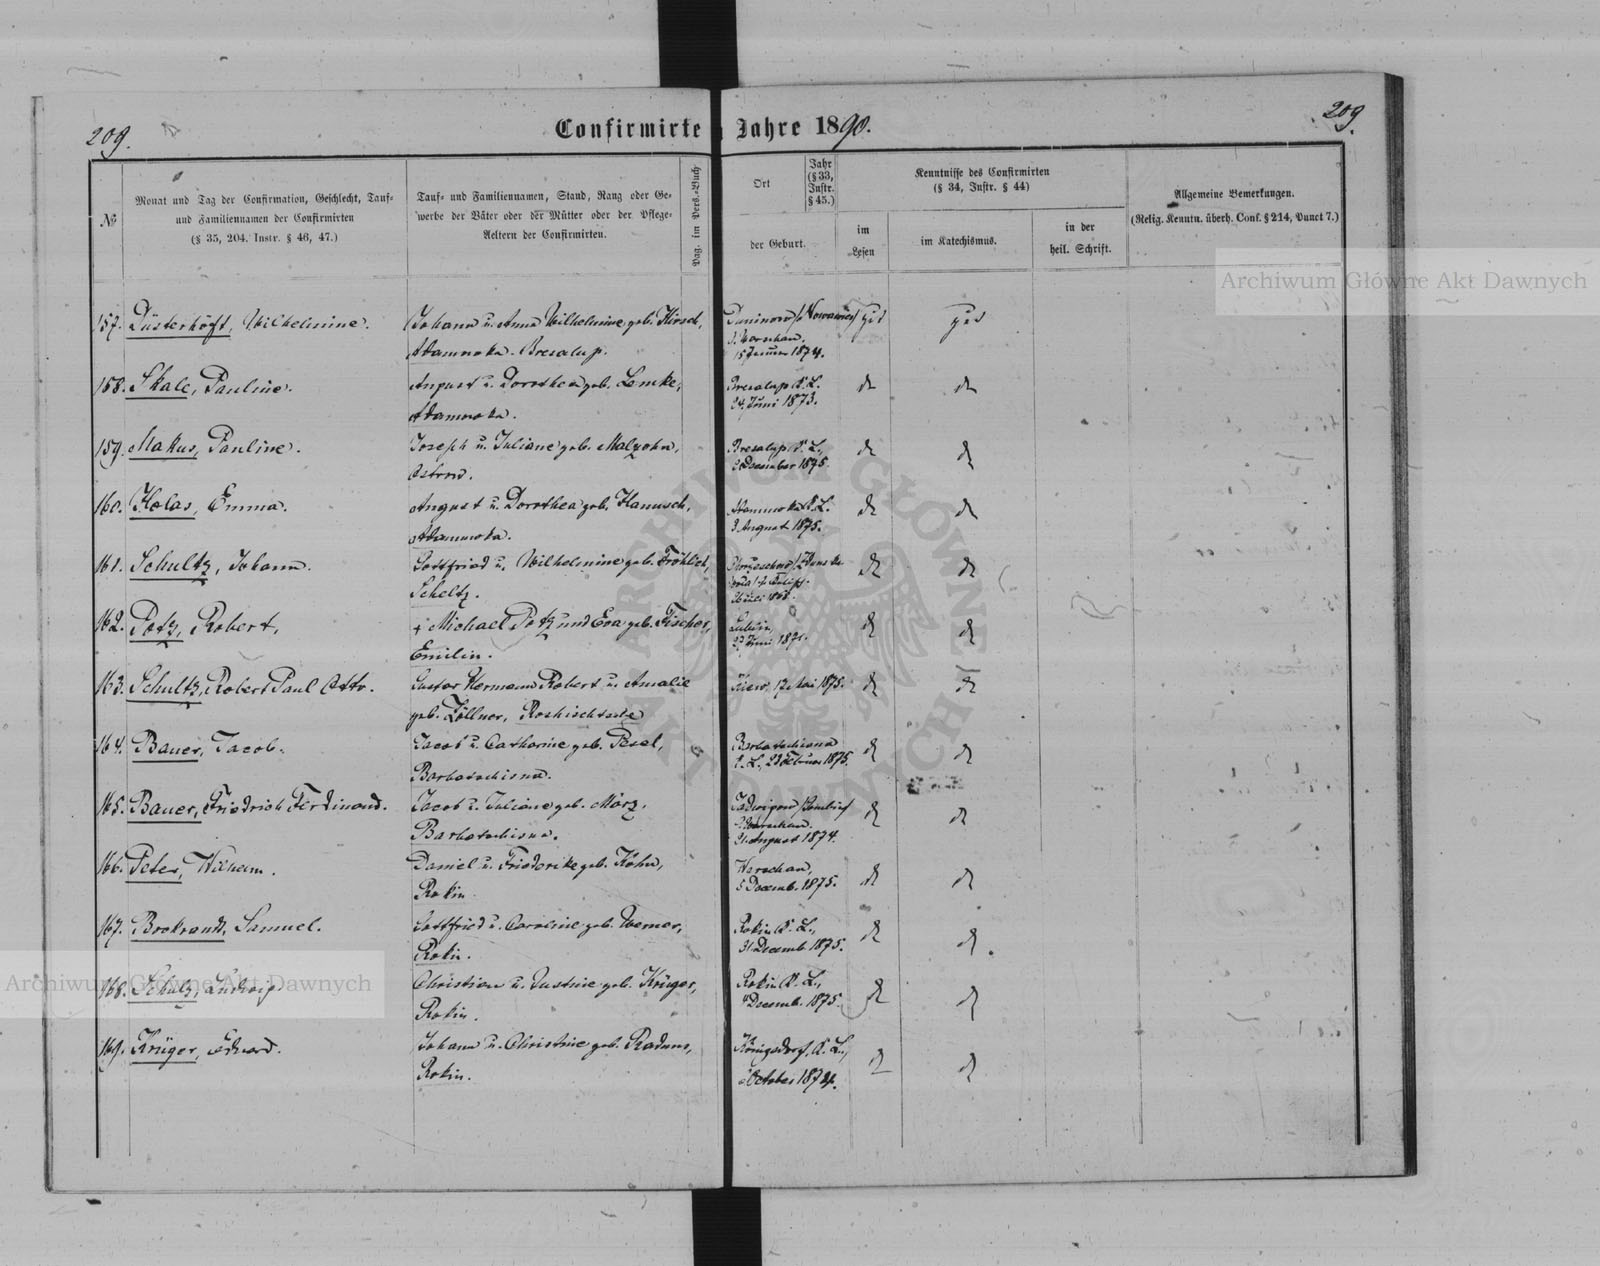 209.
Confirmirte
Jahre 1890.
209.
№
Monat und Tag der Confirmation, Geschlecht, Tauf-
und Familiennamen der Confirmirten
(§ 35, 204. Instr. § 46, 47.)
Tauf- und Familiennamen, Stand, Rang oder Ge-
werbe der Väter oder der Mütter oder der Pflege-
Aeltern der Confirmirten.
Pag. im Pers.-Buch
Ort
Jahr
(§ 33,
Instr.
§ 45.)
der Geburt.
Kenntnisse des Confirmirten
(§ 34, Instr. § 44)
im
Lesen
im Katechismus.
in der
heil. Schrift.
Allgemeine Bemerkungen.
(Relig. Kenntn. überh. Conf. § 214, Punct 7.)
157. Düsterhöft, Wilhelmine.
Johann u. Anna Wilhelmine geb. Hirsch,
Adamowka. Bresalup.
Warschau.
Januar 1874.
gut
gut
158. Skale, Pauline.
August u. Dorothea geb. Lemke,
Adamowka.
Bresalup K. L.
24. Juni 1873.
159. Makus, Pauline.
Joseph u. Juliane geb. Malzahn,
Ostrow.
Bresalup K. L.,
December 1875.
160. Holas, Emma.
August u. Dorothea geb. Hanusch,
Adamowka.
Adamowka K. L.
3 August 1875.
161. Schultz, Johann.
Gottfried u. Wilhelmine geb. Fröhlich,
Scheltz.
162. Potz, Robert,
† Michael Potz und Eva geb. Fischer,
Emilin.
Juni 1871.
163. Schultz, Robert Paul Otto.
Gustav Hermann Robert u. Amalie
geb. Zöllner, Roshischtsche
Kiew, 17 Mai 1875.
164. Bauer, Jacob.
Jacob u. Catharine geb. Pesel,
Barbatschisna.
Barbatschisna
K. L., 23 Februar 1875.
165. Bauer, Friedrich Ferdinand.
Jacob u. Juliane geb. März,
Barbatschisna.
Warschau.
21. August 1874.
166. Peter, Wilhelm.
Daniel u. Friederike geb. Köhn,
Rokin
Warschau,
5 Decemb. 1875.
167. Brokrandt, Samuel.
Gottfried u. Caroline geb. Werner,
Rokin.
Rokin K. L.,
31 Decemb. 1875.
168. Schulz, Ludwig
Christian u. Justine geb. Krüger,
Rokin.
Rokin K. L.,
4 Decemb. 1875.
169. Krüger, Eduard.
Johann u. Christine geb. Radunz,
Rokin.
Königsdorf, K. L.,
October 1874.
Archiwum Główne Akt Dawnych
Archiwum Główne Akt Dawnych
ARCHIWUM GŁÓWNE AKT DAWNYCH